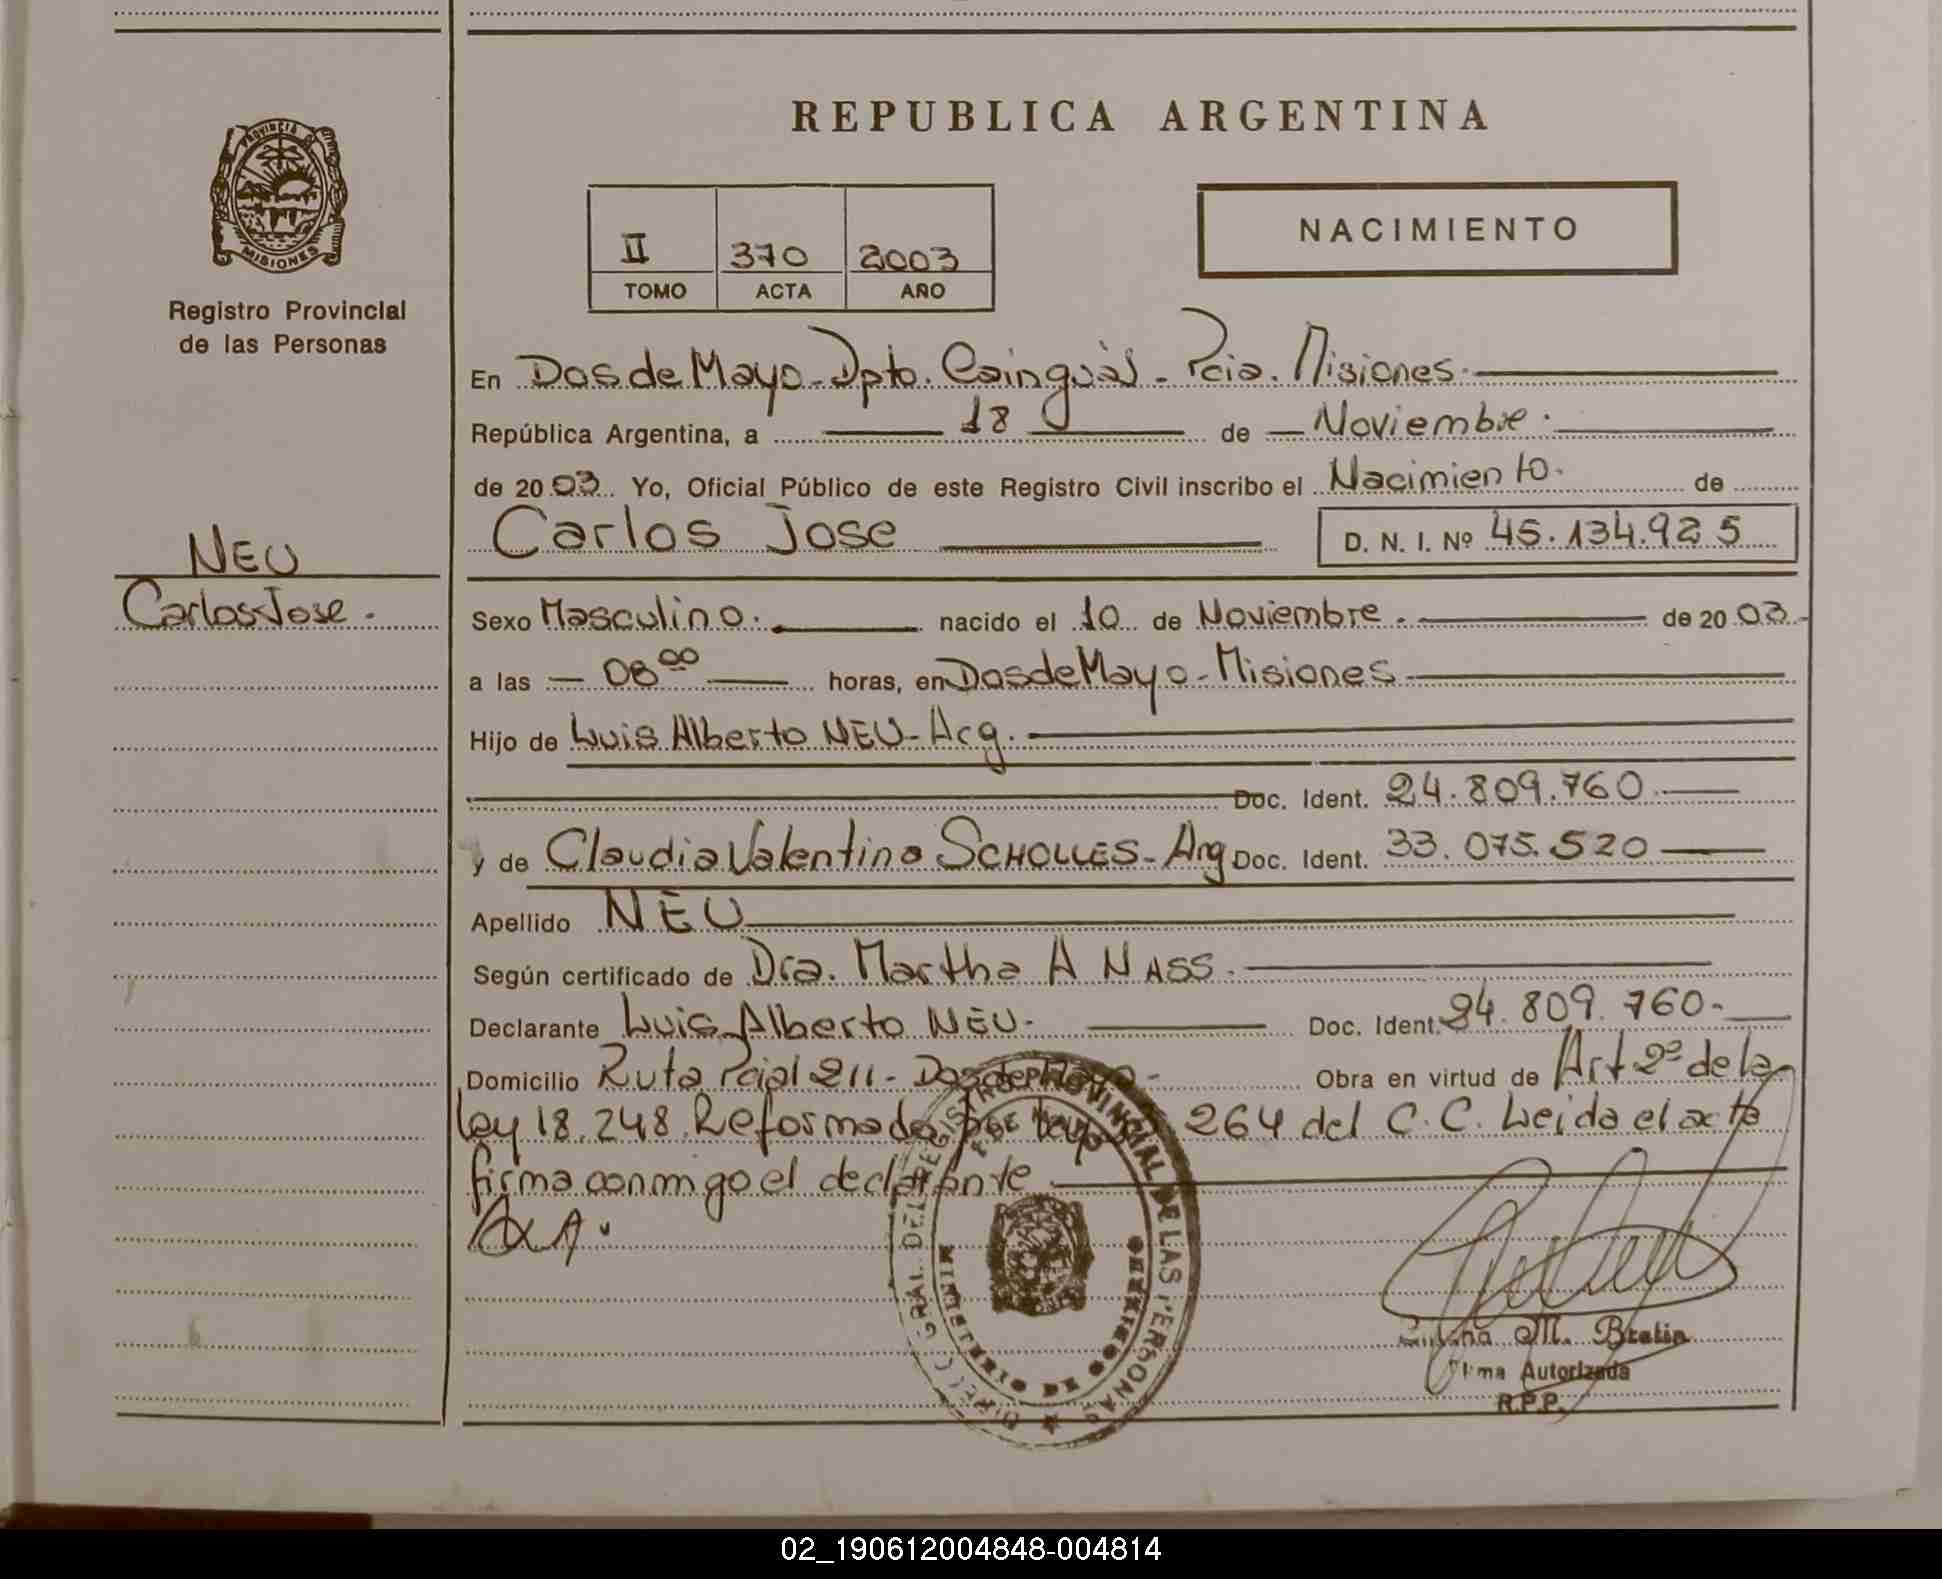 REPUBLICA ARGENTINA
PROVINCIA DE
MISIONES
Registro Provincial
de las Personas
II 370 2003
TOMO ACTA AÑO
NACIMIENTO
En Dos de Mayo - Dpto. Cainguás - Pcia. Misiones
República Argentina, a 18 de Noviembre
de 2003 Yo, Oficial Público de este Registro Civil inscribo el Nacimiento de
Carlos Jose D. N. I. Nº 45.134.925
NEU
Carlos Jose.
Sexo Masculino. nacido el 10 de Noviembre. de 2003.
a las 08 00 horas, en Dos de Mayo - Misiones
Hijo de Luis Alberto NEU - Arg.
Doc. Ident. 24.809.760
y de Claudia Valentina SCHOLLES - Arg Doc. Ident. 33.075.520
Apellido NEU
Según certificado de Dra. Martha A NASS.
Declarante Luis Alberto NEU. Doc. Ident. 24.809.760-
Domicilio Ruta Pcial 211 - Dos de Mayo - Obra en virtud de Art 2º de la
Ley 18.248 Reformada por 264 del C. C. Leida el acta
firma conmigo el declarante
DIRECC. GRAL. DEL REGISTRO PROVINCIAL DE LAS PERSONAS
MINISTERIO DE GOBIERNO
M. Bretin
Firma Autorizada
R.P.P.
02_190612004848-004814